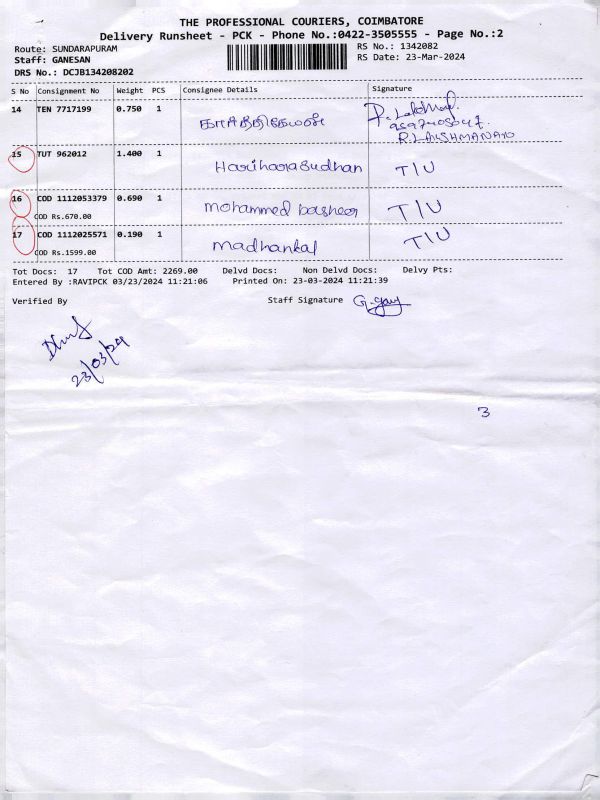 THE PROFESSIONAL COURIERS, COIMBATORE
Delivery Runsheet - PCK - Phone No.:0422-3505555 - Page No.:2
Route: SUNDARAPURAM
RS No.: 1342082
Staff: GANESAN
RS Date: 23-Mar-2024
DRS No.: DCJB134208202
S No Consignment No Weight PCS Consignee Details Signature
14 TEN 7717199 0.750 1
R. LAKSHMANAN
15 TUT 962012 1.400 1 Hariharasudhan T/U
16 COD 1112053379 0.690 1 mohammed basheer T/U
COD Rs.670.00
17 COD 1112025571 0.190 1 madhankal T/U
COD Rs.1599.00
Tot Docs: 17 Tot COD Amt: 2269.00 Delvd Docs: Non Delvd Docs: Delvy Pts:
Entered By :RAVIPCK 03/23/2024 11:21:06 Printed On: 23-03-2024 11:21:39
Verified By Staff Signature
23/03/24
3